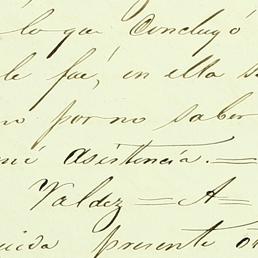 lo que concluyó
le fué, en ella
no por no saber
mi asistencia. =
Valdez = A =
presente